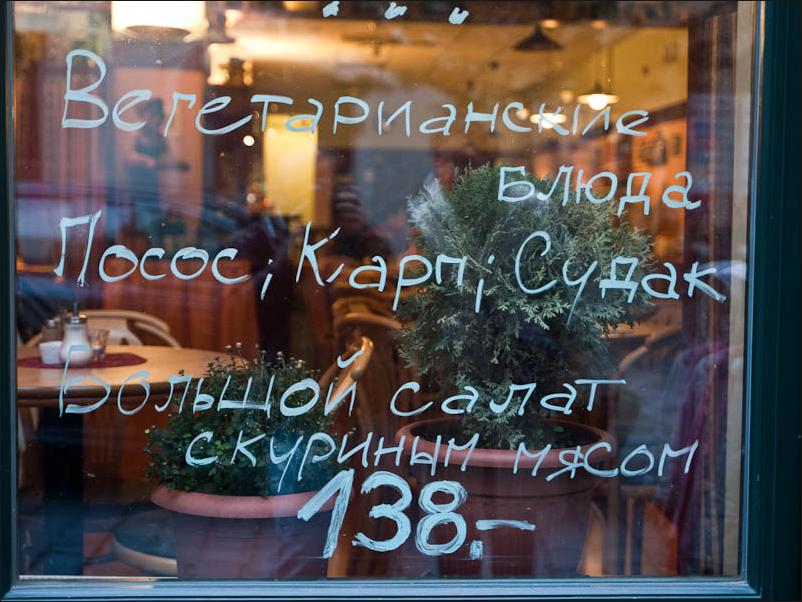 Вегетарианскіе
блюда
Лосос; Карп; Судак
Большой салат
скуриным мясом
138.-